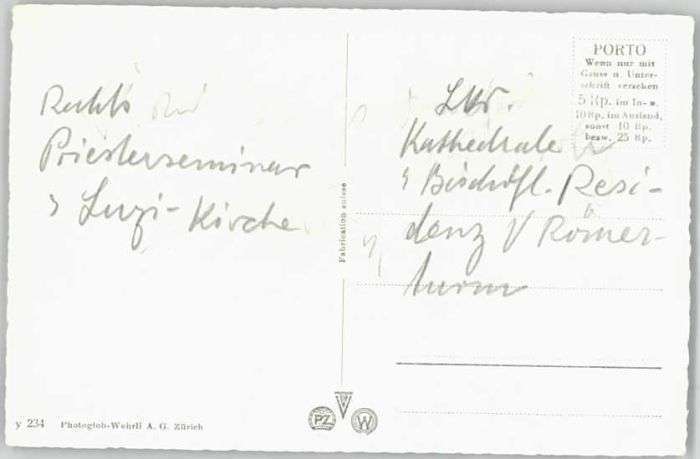 Rechts
Priesterseminar
Luzi-Kirche
Fabrication suisse
PORTO
Wenn nur mit
Gruss u. Unter-
schrift versehen
5 Rp. im In- u.
10 Rp. im Ausland,
sonst 10 Rp.
bezw. 25 Rp.
Kathedrale
Bischöfl. Resi-
denz Römer-
turm
y 234 Photoglob-Wehrli A. G. Zürich
PZ W